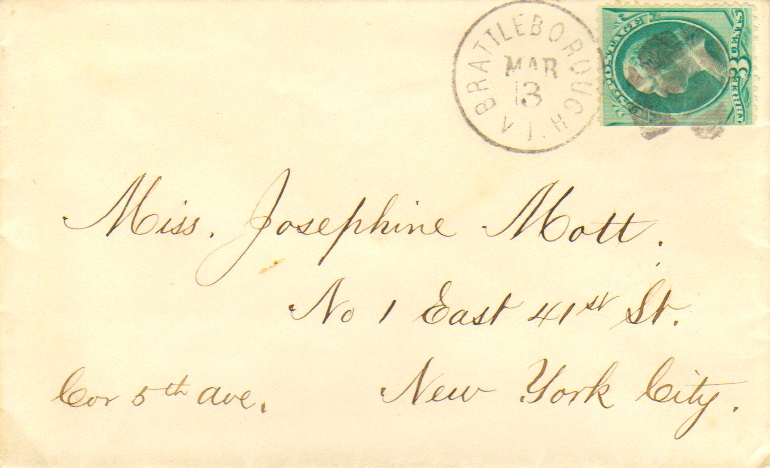 BRATTLEBOROUGH VT.
MAR
13
POSTAGE
Miss. Josephine Mott.
No 1 East 41st St.
Cor 5th Ave. New York City.